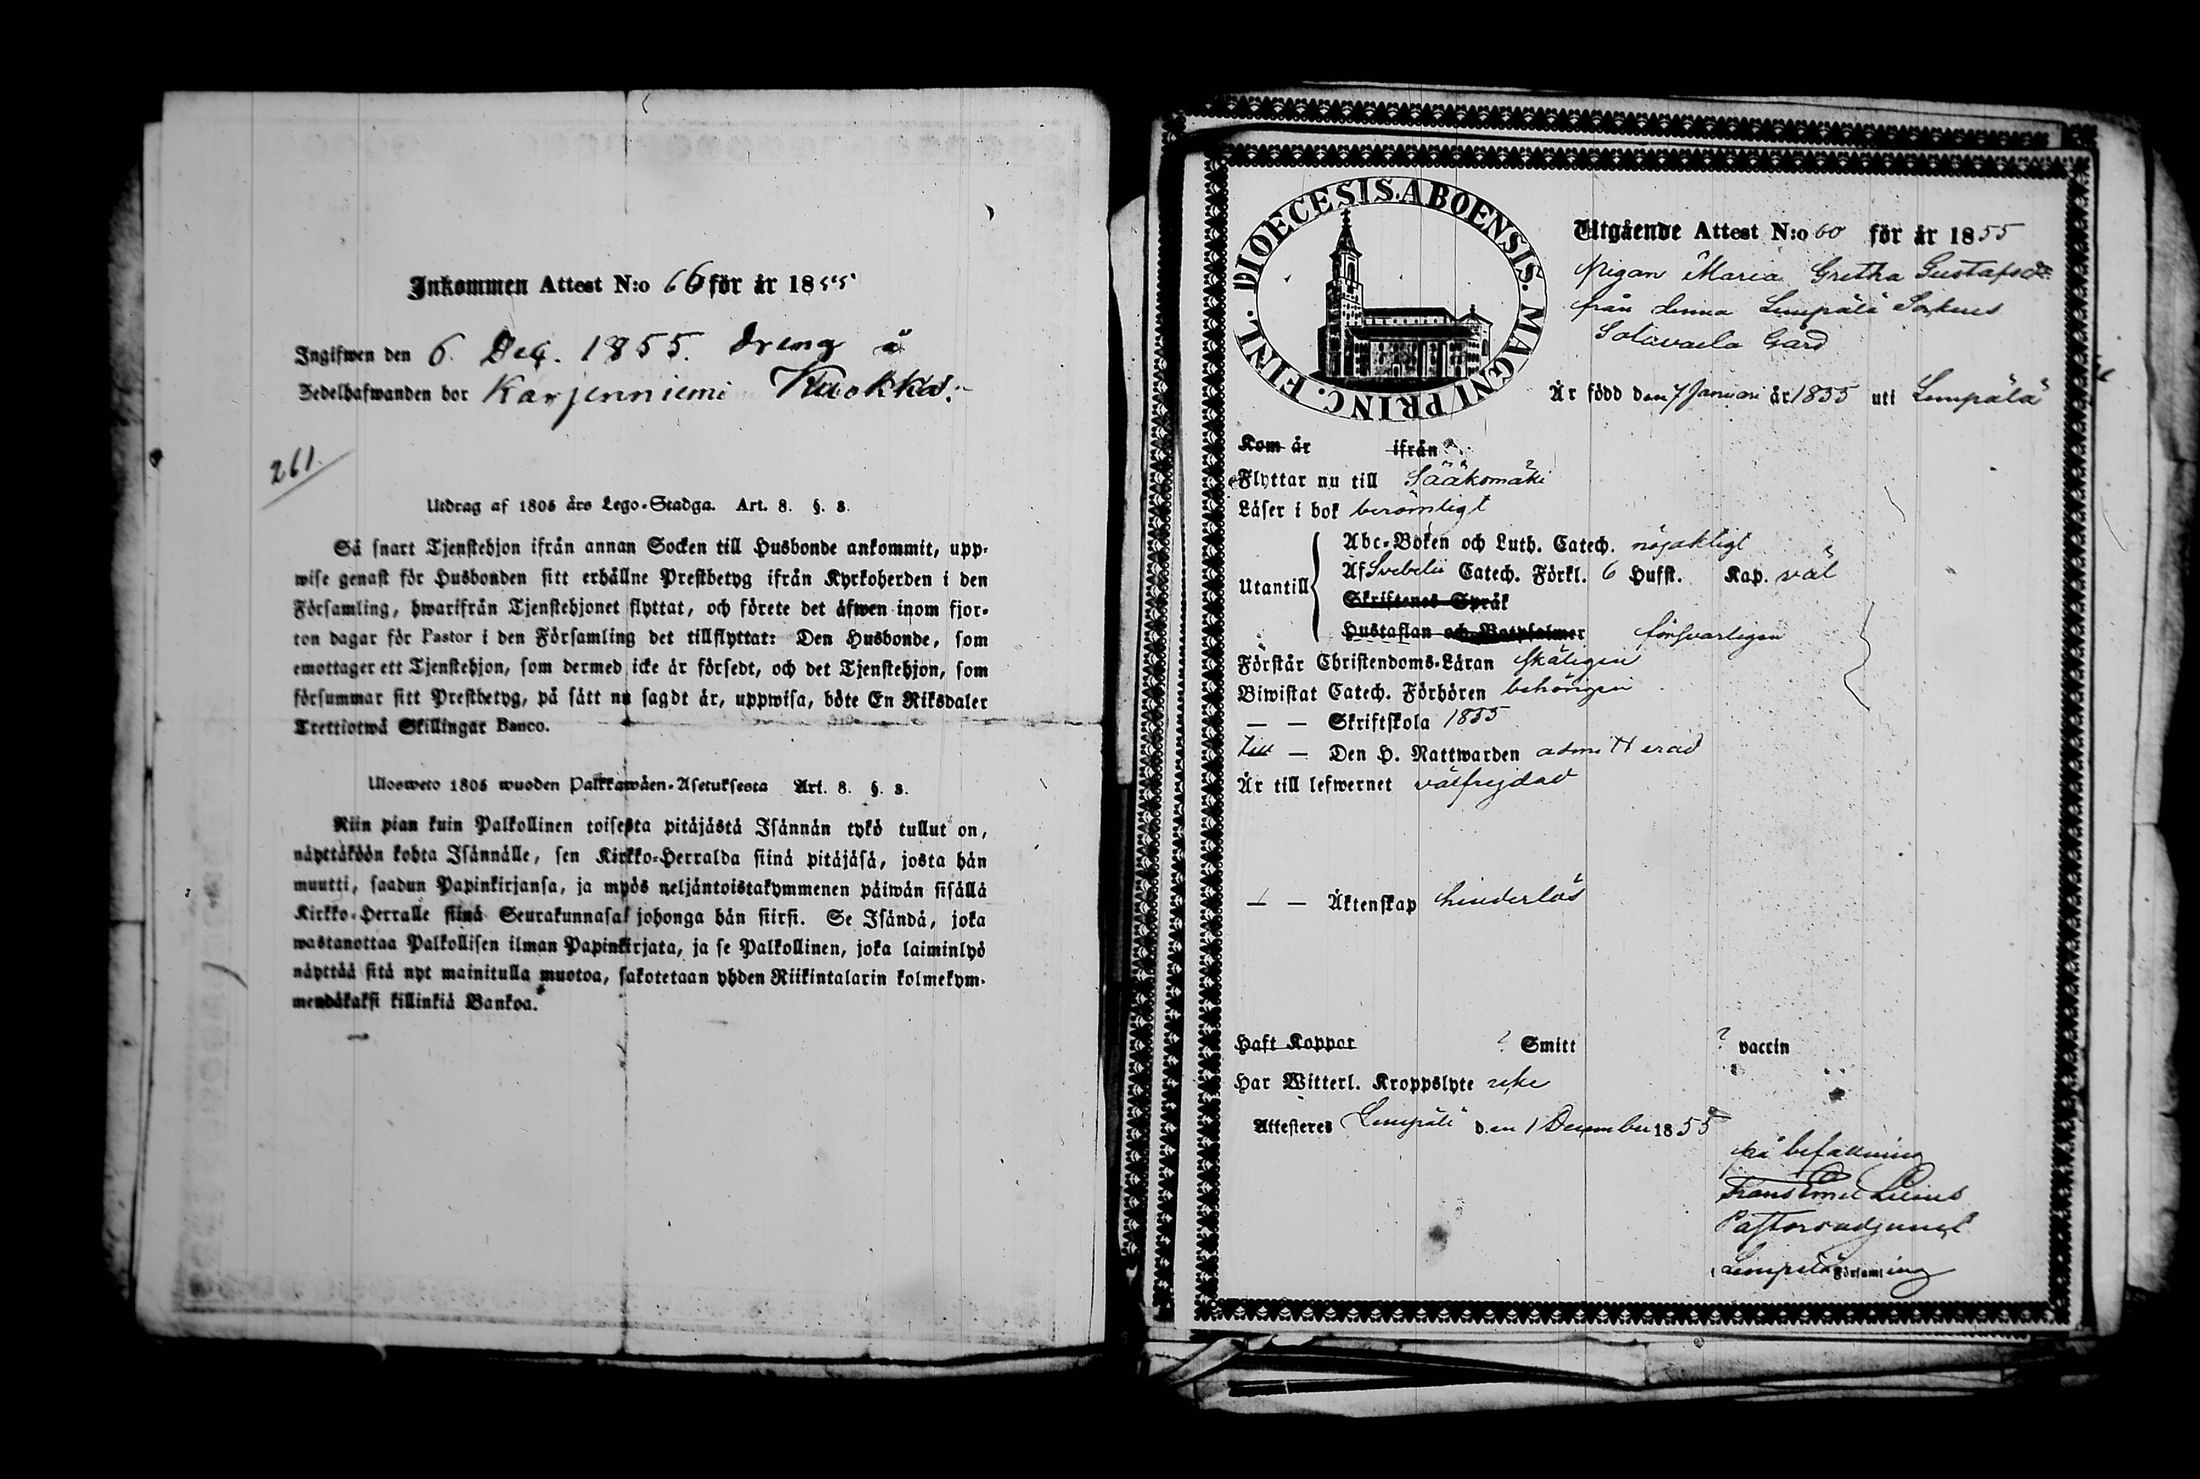 Inkommen Attest N:o 66 för år 1855
Ingifwen den 6. Dec. 1855. dreng å
Sedelhafwanden bor Karjenniemi Kuokka.
261.
Utdrag af 1805 års Lego-Stadga. Art. 8. §. 3.
Så snart Tjenstehjon ifrån annan Socken till Husbonde ankommit, upp-
wise genast för Husbonden sitt erhållne Prestbetyg ifrån Kyrkoherden i den
Församling, hwarifrån Tjenstehjonet flyttat, och förete det äfwen inom fjor-
ton dagar för Pastor i den Församling det tillflyttat: Den Husbonde, som
emottager ett Tjenstehjon, som dermed icke är försedt, och det Tjenstehjon, som
försummar sitt Prestbetyg, på sätt nu sagdt är, uppwisa, böte En Riksdaler
Trettiotwå Skillingar Banco.
Ulosweto 1805 wuoden Palkkawäen-Asetuksesta Art. 8. §. 3.
Niin pian kuin Palkollinen toisesta pitäjästä Isännän tykö tullut on,
näyttäköön kohta Isännälle, sen Kirkko-Herralda siinä pitäjäsä, josta hän
muutti, saadun Papinkirjansa, ja myös neljäntoistakymmenen päiwän sisällä
Kirkko-Herralle siinä Seurakunnasa johonga hän siirsi. Se Isändä, joka
wastanottaa Palkollisen ilman Papinkirjata, ja se Palkollinen, joka laiminlyö
näyttää sitä nyt mainitulla muotoa, sakotetaan yhden Riikintalarin kolmekym-
mendäkaksi killinkiä Bankoa.
DIOECESIS. ABOENSIS. MAGNI PRINC. FINL.
Utgående Attest N:o 60 för år 1855
Pigan Maria Gretha Gustafsdr
från denna Lempälä Sockens
Sotavalla Gård
Är född den 7 Januari år 1835 uti Lempälä
Kom år ifrån
Flyttar nu till Sääksmäki
Läser i bok berömligt
Utantill
Abc-Boken och Luth. Catech. nöjaktligt
Af Svebelii Catech. Förkl. 6 Hufst. Kap. väl
Skriftenes Språk
Hustaflan och Botpsalmer försvarligen
Förstår Christendoms-Läran skäligen
Biwistat Catech. Förhören behörigen
— — Skriftskola 1855
Till — Den H. Nattwarden admitterad
Är till lefwernet välfrejdad
— — Äktenskap hinderlös
Haft Koppor ? Smitt ? vaccin
Har Witterl. Kroppslyte icke
Attesteres Lempälä den 1 December 1855
på befallning
Frans Emil Lilius
Pastorsadjunct
i Lempälä Församling